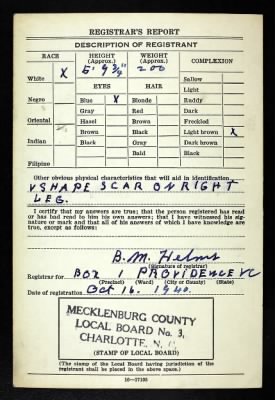 REGISTRAR'S REPORT
DESCRIPTION OF REGISTRANT
RACE HEIGHT (Approx.) WEIGHT (Approx.) COMPLEXION
White X 5' 9 3/4" 200 Sallow
EYES HAIR Light
Negro Blue X Blonde Ruddy
Gray Red Dark
Oriental Hazel Brown Freckled
Brown Black Light brown X
Indian Black Gray Dark brown
Bald Black
Filipino
Other obvious physical characteristics that will aid in identification
V SHAPE SCAR ON RIGHT
LEG.
I certify that my answers are true; that the person registered has read
or has had read to him his own answers; that I have witnessed his sig-
nature or mark and that all of his answers of which I have knowledge are
true, except as follows:
B. M. Helms
(Signature of registrar)
Registrar for BOX 1 PROVIDENCE NC
(Precinct) (Ward) (City or County) (State)
Date of registration Oct 16. 1940.
MECKLENBURG COUNTY
LOCAL BOARD No. 3,
CHARLOTTE, N.
(STAMP OF LOCAL BOARD)
(The stamp of the Local Board having jurisdiction of the
registrant shall be placed in the above space.)
16—17105